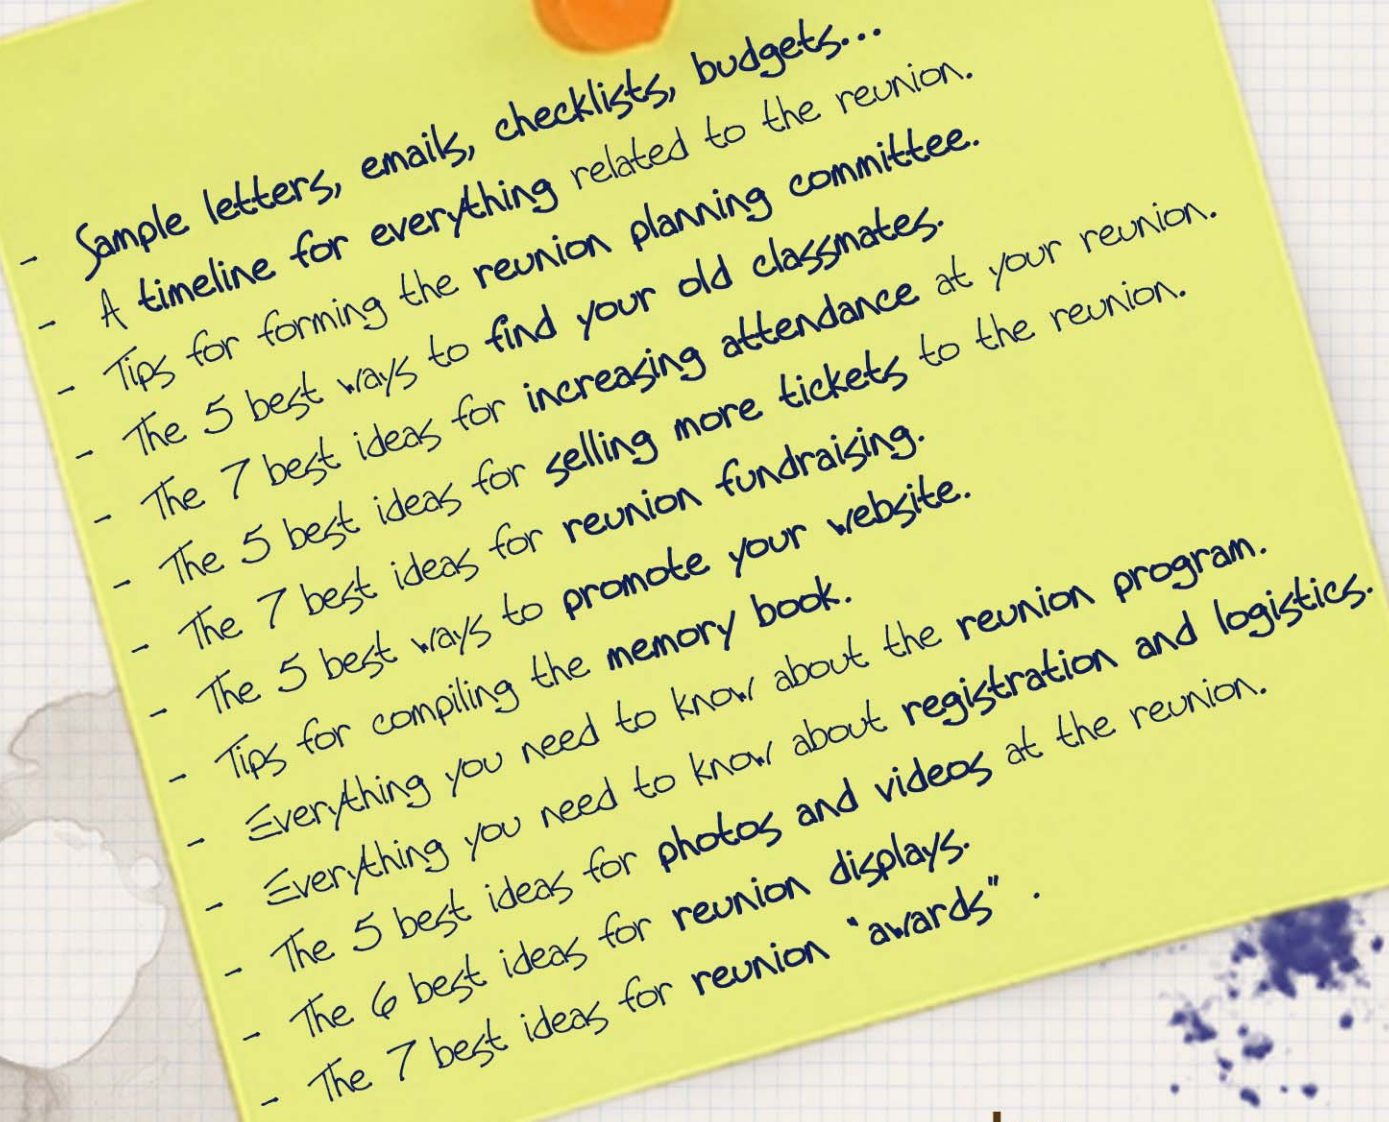 - Sample letters, emails, checklists, budgets...
- A timeline for everything related to the reunion.
- Tips for forming the reunion planning committee.
- The 5 best ways to find your old classmates.
- The 7 best ideas for increasing attendance at your reunion.
- The 5 best ideas for selling more tickets to the reunion.
- The 7 best ideas for reunion fundraising.
- The 5 best ways to promote your website.
- Tips for compiling the memory book.
- Everything you need to know about the reunion program.
- Everything you need to know about registration and logistics.
- The 5 best ideas for photos and videos at the reunion.
- The 6 best ideas for reunion displays.
- The 7 best ideas for reunion "awards" .